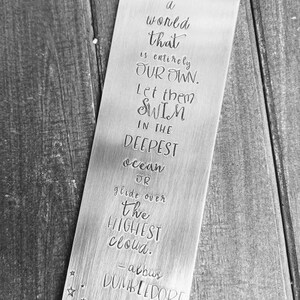 a
world
that
is entirely
OUR OWN.
Let them
SWIM
IN THE
DEEPEST
ocean
OR
glide over
the
HIGHEST
cloud.
-albus
DUMBLEDORE